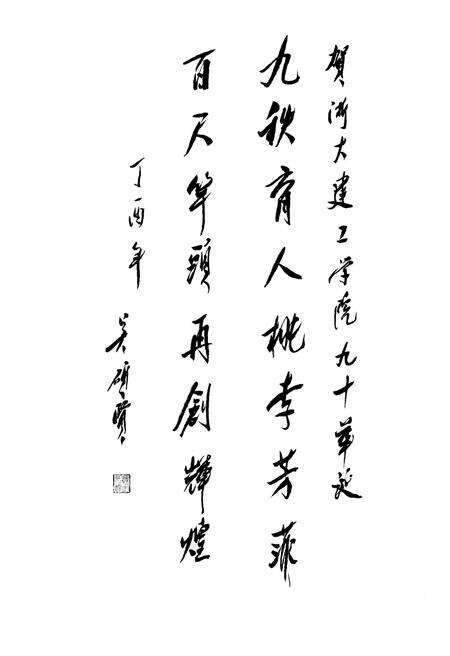 賀浙大建工学院九十華诞
九秩育人桃李芳菲
百尺竿頭再創輝煌
丁酉年
吴硕賢